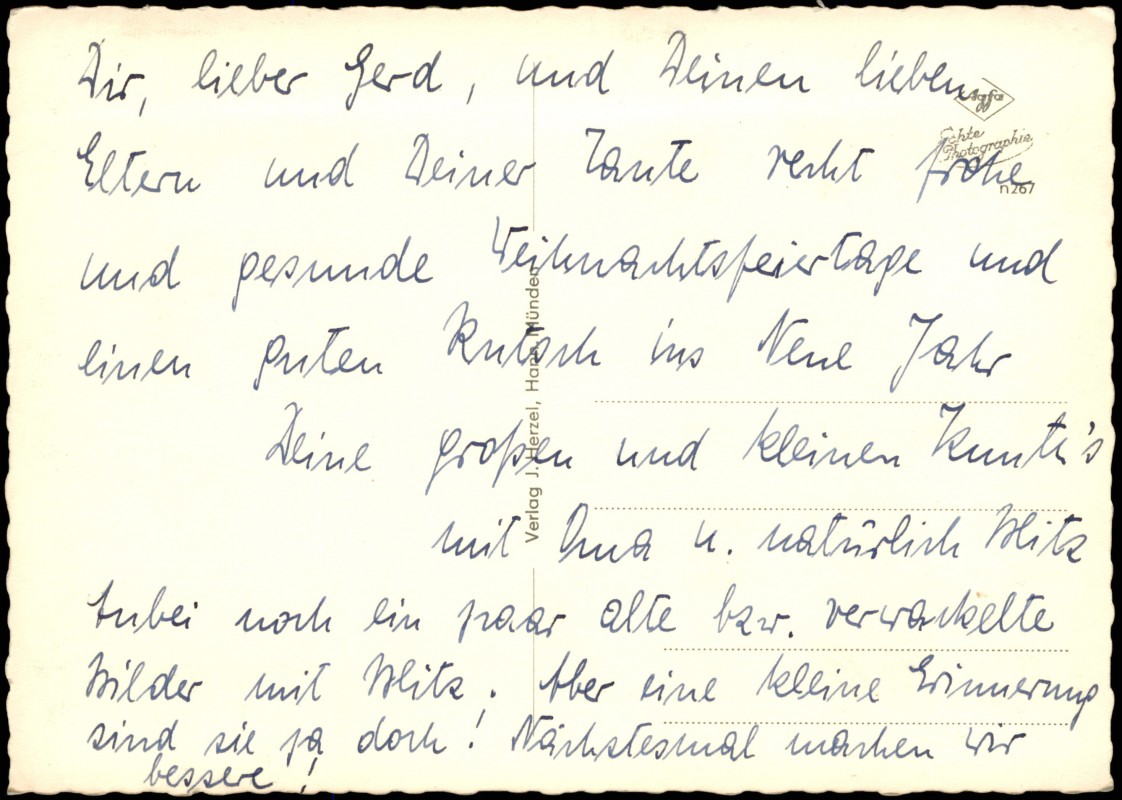 Dir, lieber Gerd, und Deinen lieben
Eltern und Deiner Tante recht frohe
und gesunde Weihnachtsfeiertage und
einen guten Rutsch ins Neue Jahr
Deine großen und kleinen Kunth's
mit Oma u. natürlich Blitz
Anbei noch ein paar alte bzw. verwackelte
Bilder mit Blitz. Aber eine kleine Erinnerung
sind sie ja doch! Nächstesmal machen wir
bessere!
Agfa
Echte
Photographie
n267
Verlag J. Herzel, Hann. Münden